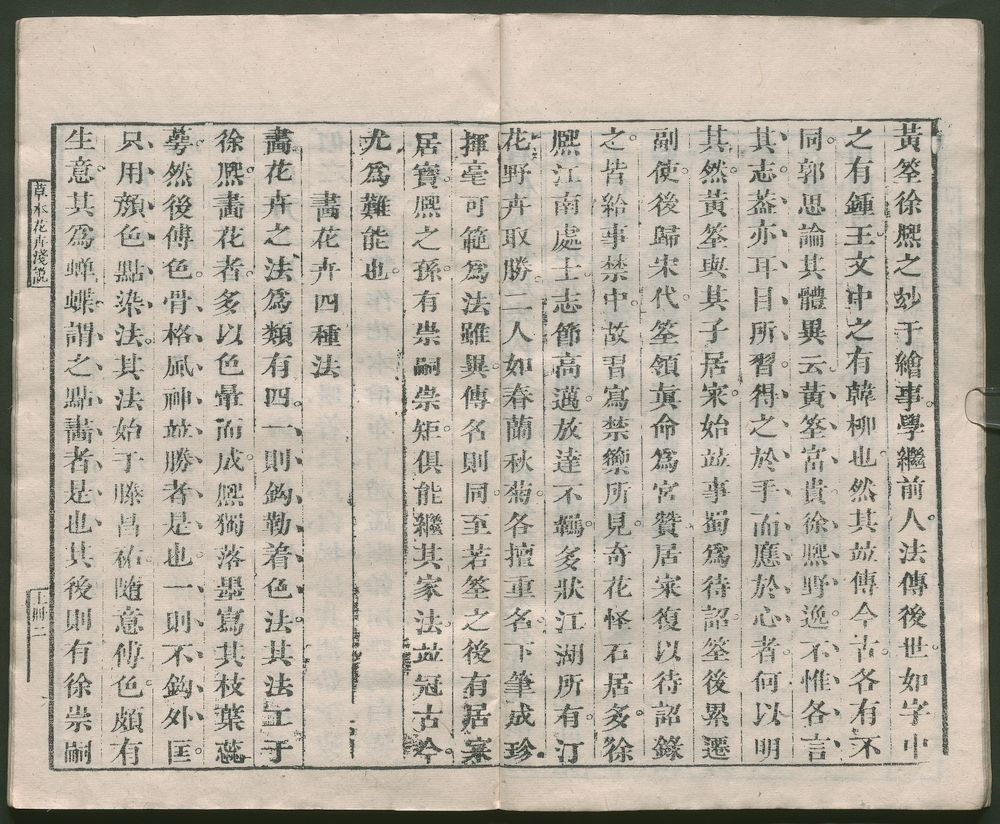 黃筌徐熈之玅于繪事學繼前人法傳後世如字中
之有鍾王文中之有韓柳也然其竝傳今古各有不
同郭思論其體異云黃筌富貴徐熈野逸不惟各言
其志葢亦耳目所習得之於手而應於心者何以明
其然黃筌與其子居寀始竝事蜀爲待詔筌後累遷
副使後歸宋代筌領眞命爲宮贊居寀復以待詔錄
之皆給事禁中故習寫禁籞所見奇花怪石居多徐
熈江南處士志節高邁放達不羈多狀江湖所有汀
花野卉取勝二人如春蘭秋菊各擅重名下筆成珍
揮毫可範爲法雖異傳名則同至若筌之後有居寀
居寶熈之孫有崇嗣崇矩俱能繼其家法竝冠古今
尤爲難能也
畫花卉四種法
畫花卉之法爲類有四一則鈎勒着色法其法工于
徐熈畫花者多以色暈而成熈獨落墨寫其枝葉蕊
蕚然後傅色骨格風神竝勝者是也一則不鈎外匡
只用顏色點染法其法始于滕昌祐隨意傅色頗有
生意其爲蟬蝶謂之點畫者是也其後則有徐崇嗣
草木花卉淺說
下冊二